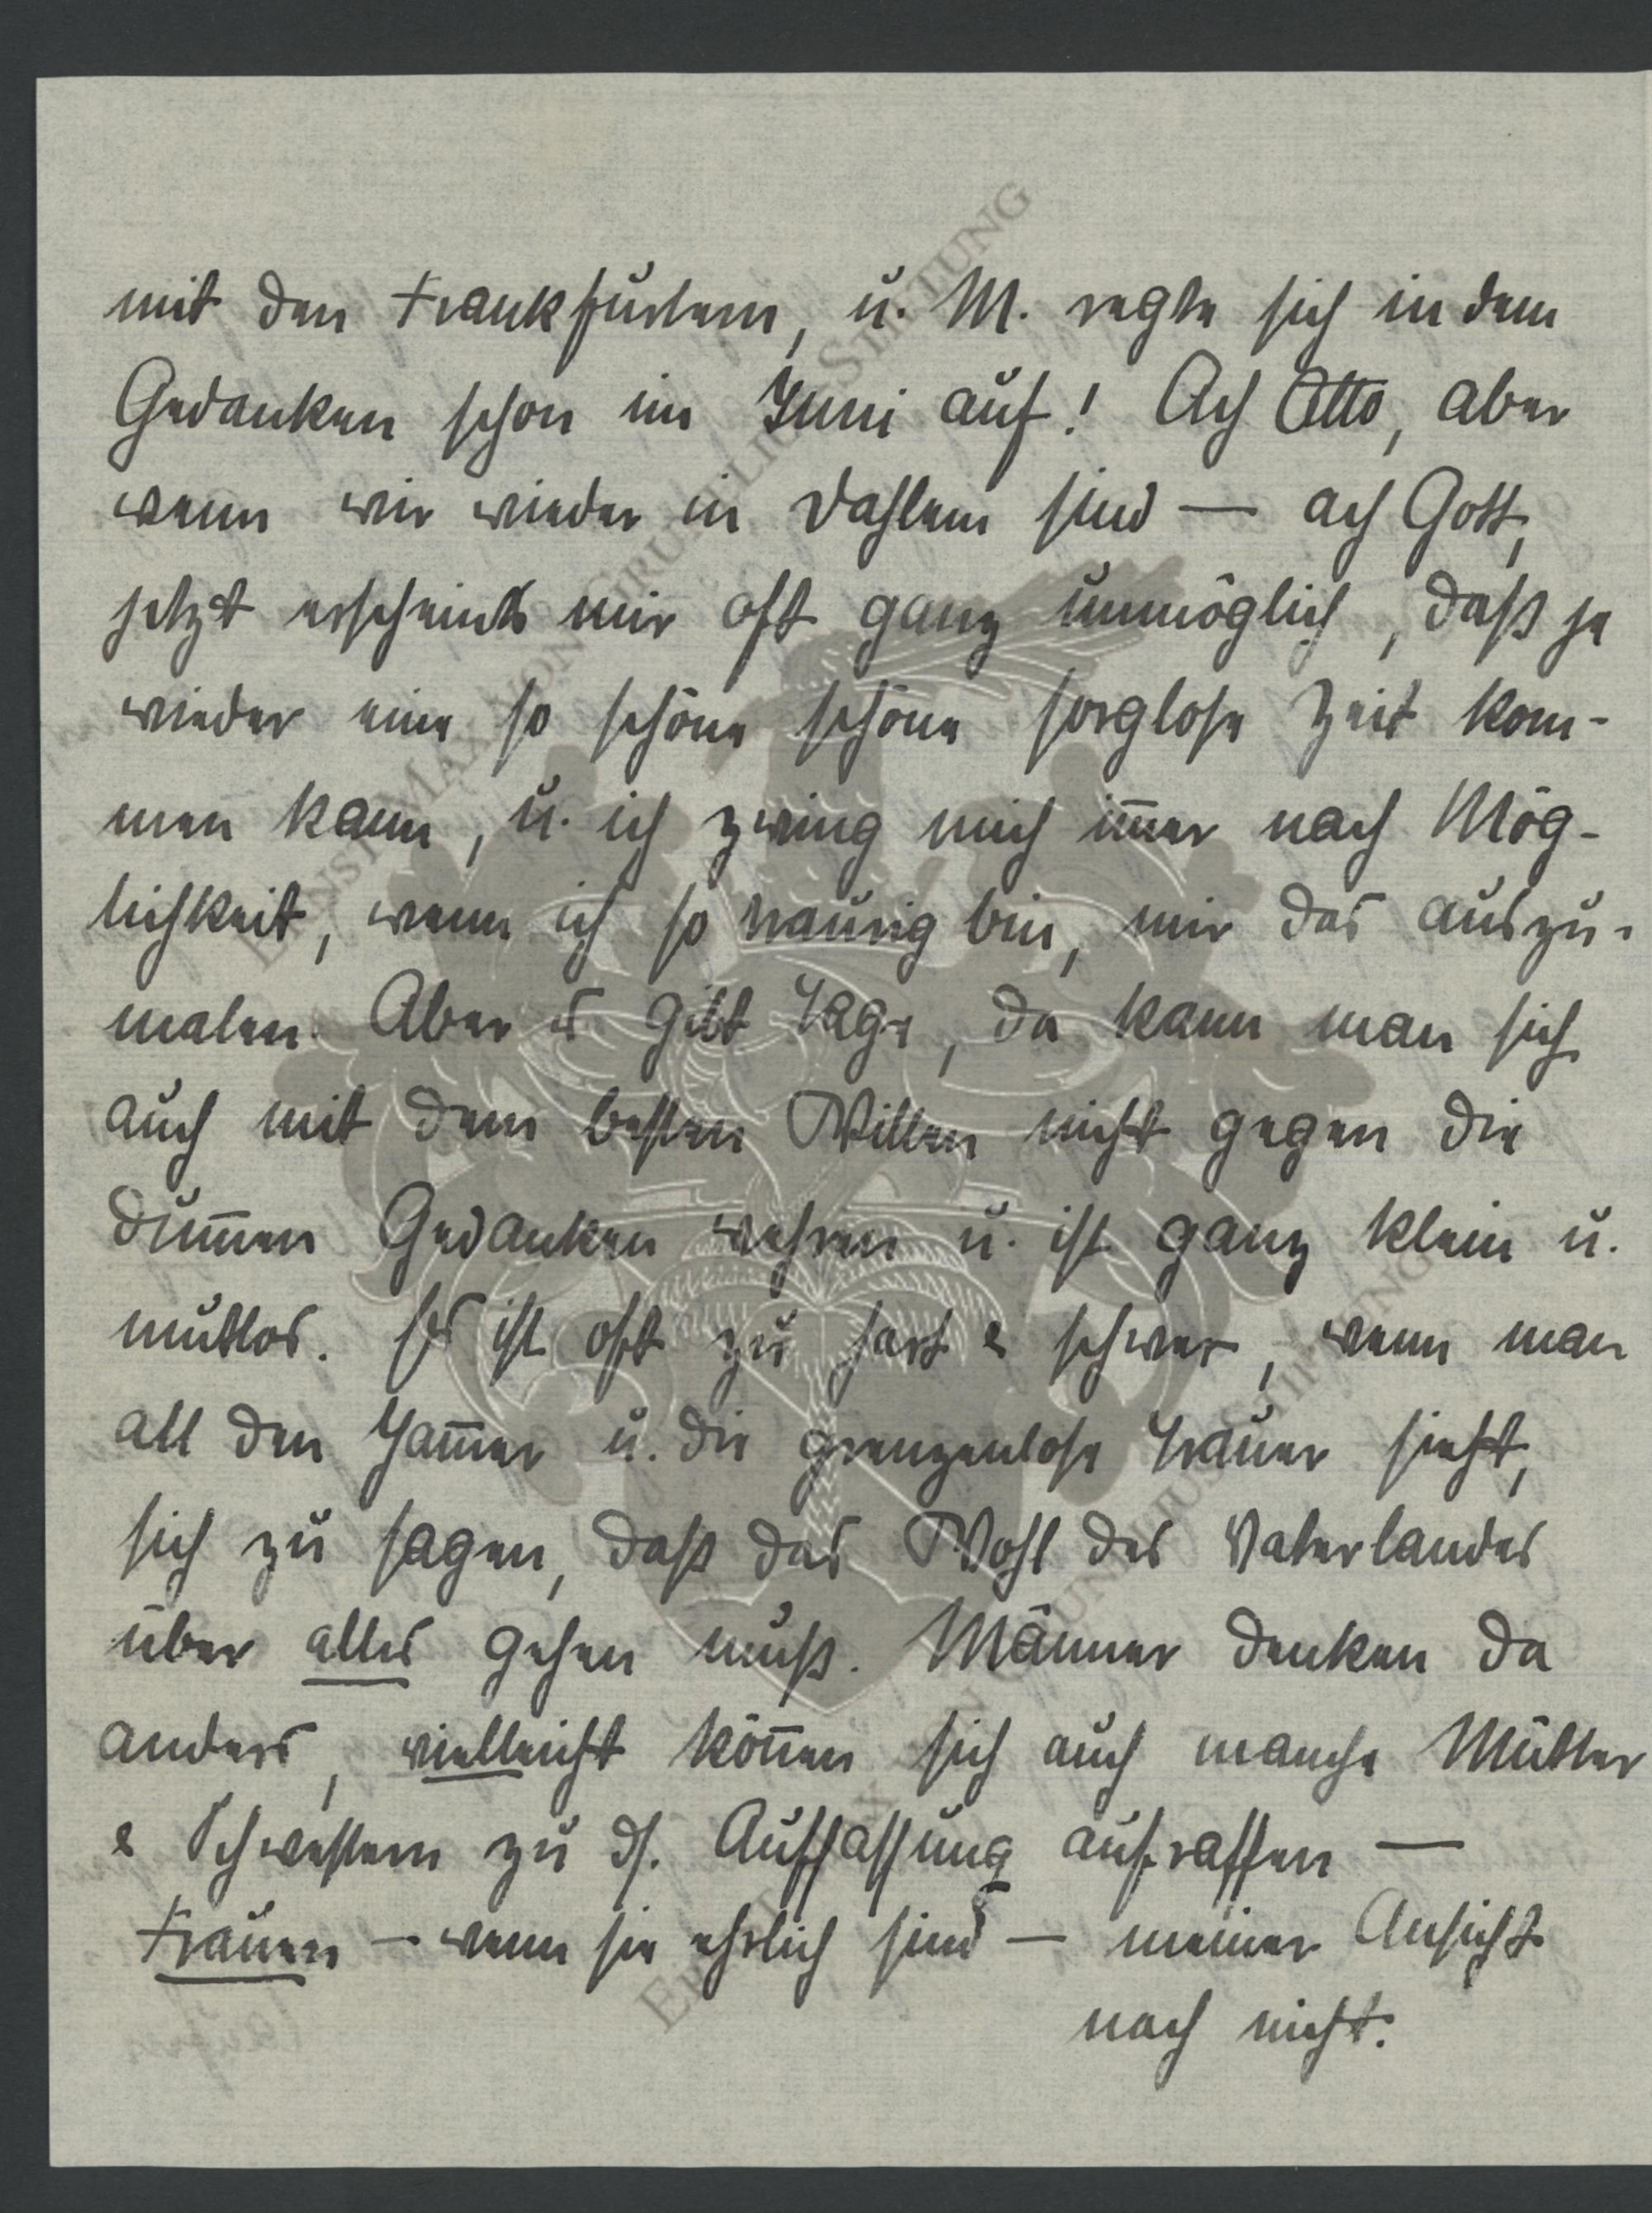 mit den Frankfurtern, u. M. regte sich in dem
Gedanken schon im Juni auf! Ach Otto, aber
wenn wir wieder in Dahlem sind — ach Gott,
jetzt erscheints mir oft ganz unmöglich, daß je
wieder eine so schöne schöne sorglose Zeit kom-
men kann, u. ich zwing mich im̅er nach Mög-
lichkeit, wenn ich so traurig bin, mir das auszu-
malen. Aber es gibt Tage, da kann man sich
auch mit dem besten Willen nicht gegen die
dum̅en Gedanken wehren u. ist ganz klein u.
mutlos. Es ist oft zu hart & schwer, wenn man
all den Jam̅er u. die grenzenlose Trauer sieht,
sich zu sagen, daß das Wohl des Vaterlandes
über alles gehen muß. Männer denken da
anders, vielleicht kön̅en sich auch manche Mütter
& Schwestern zu ds. Auffassung aufraffen —
Frauen — wenn sie ehrlich sind — meiner Ansicht
nach nicht.
ERNST MAX VON GRUNELIUS-STIFTUNG
ERNST MAX VON GRUNELIUS-STIFTUNG